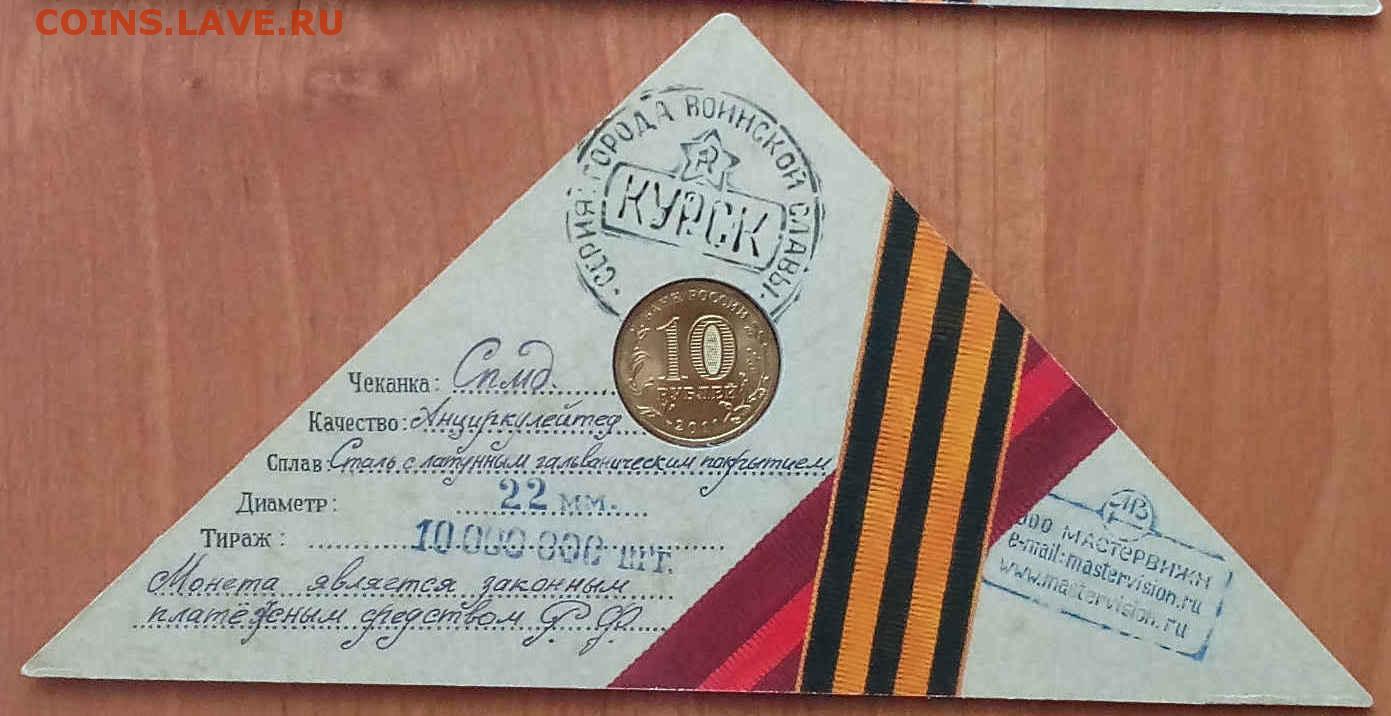 COINS.LAVE.RU
· СЕРИЯ: ГОРОДА ВОИНСКОЙ СЛАВЫ ·
КУРСК
БАНК РОССИИ
10
РУБЛЕЙ
2011
Чеканка: Спмд.
Качество: Анциркулейтед
Сплав: Сталь с латунным гальваническим покрытием
Диаметр: 22 мм.
Тираж: 10 000 000 шт.
Монета является законным
платёжным средством РФ
МВ
ООО МАСТЕРВИЖН
e-mail:mastervision.ru
www.mastervision.ru